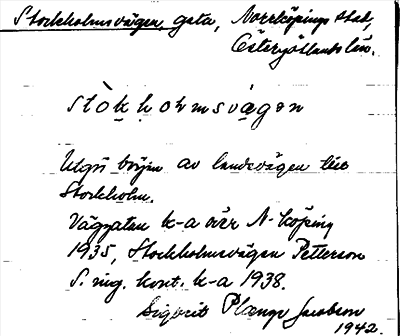 Stockholmsvägen, gata, Norrköpings stad,
Östergötlands län.
Stòk hòlmsvägen
Utgör början av landsvägen till
Stockholm.
Vägvatan k-a över N-köping
1935, Stockholmsvägen Petterson
S. ing. kont. k-a 1938.
Sigurit Plænge Jacobson
1942.